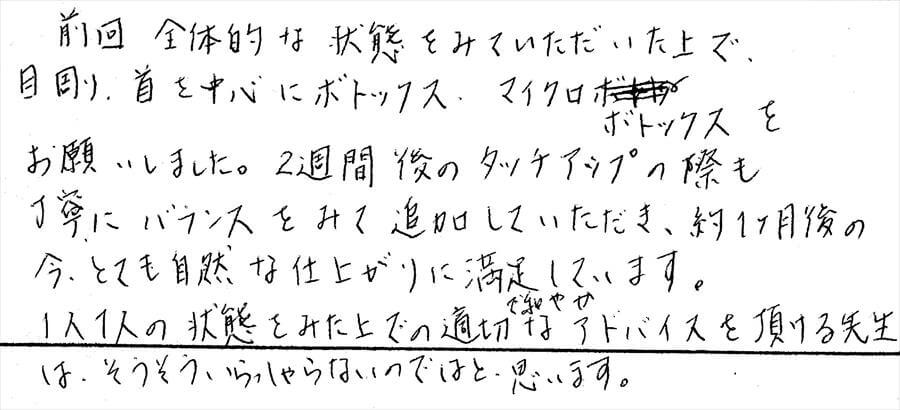 前回 全体的な状態をみていただいた上で、
目周り、首を中心にボトックス、マイクロ
ボトックスを
お願いしました。2週間後のタッチアップの際も
丁寧にバランスをみて追加していただき、約1ヶ月後の
今、とても自然な仕上がりに満足しています。
で和やか
1人1人の状態をみた上での適切なアドバイスを頂ける先生
は、そうそういらっしゃらないのではと思います。